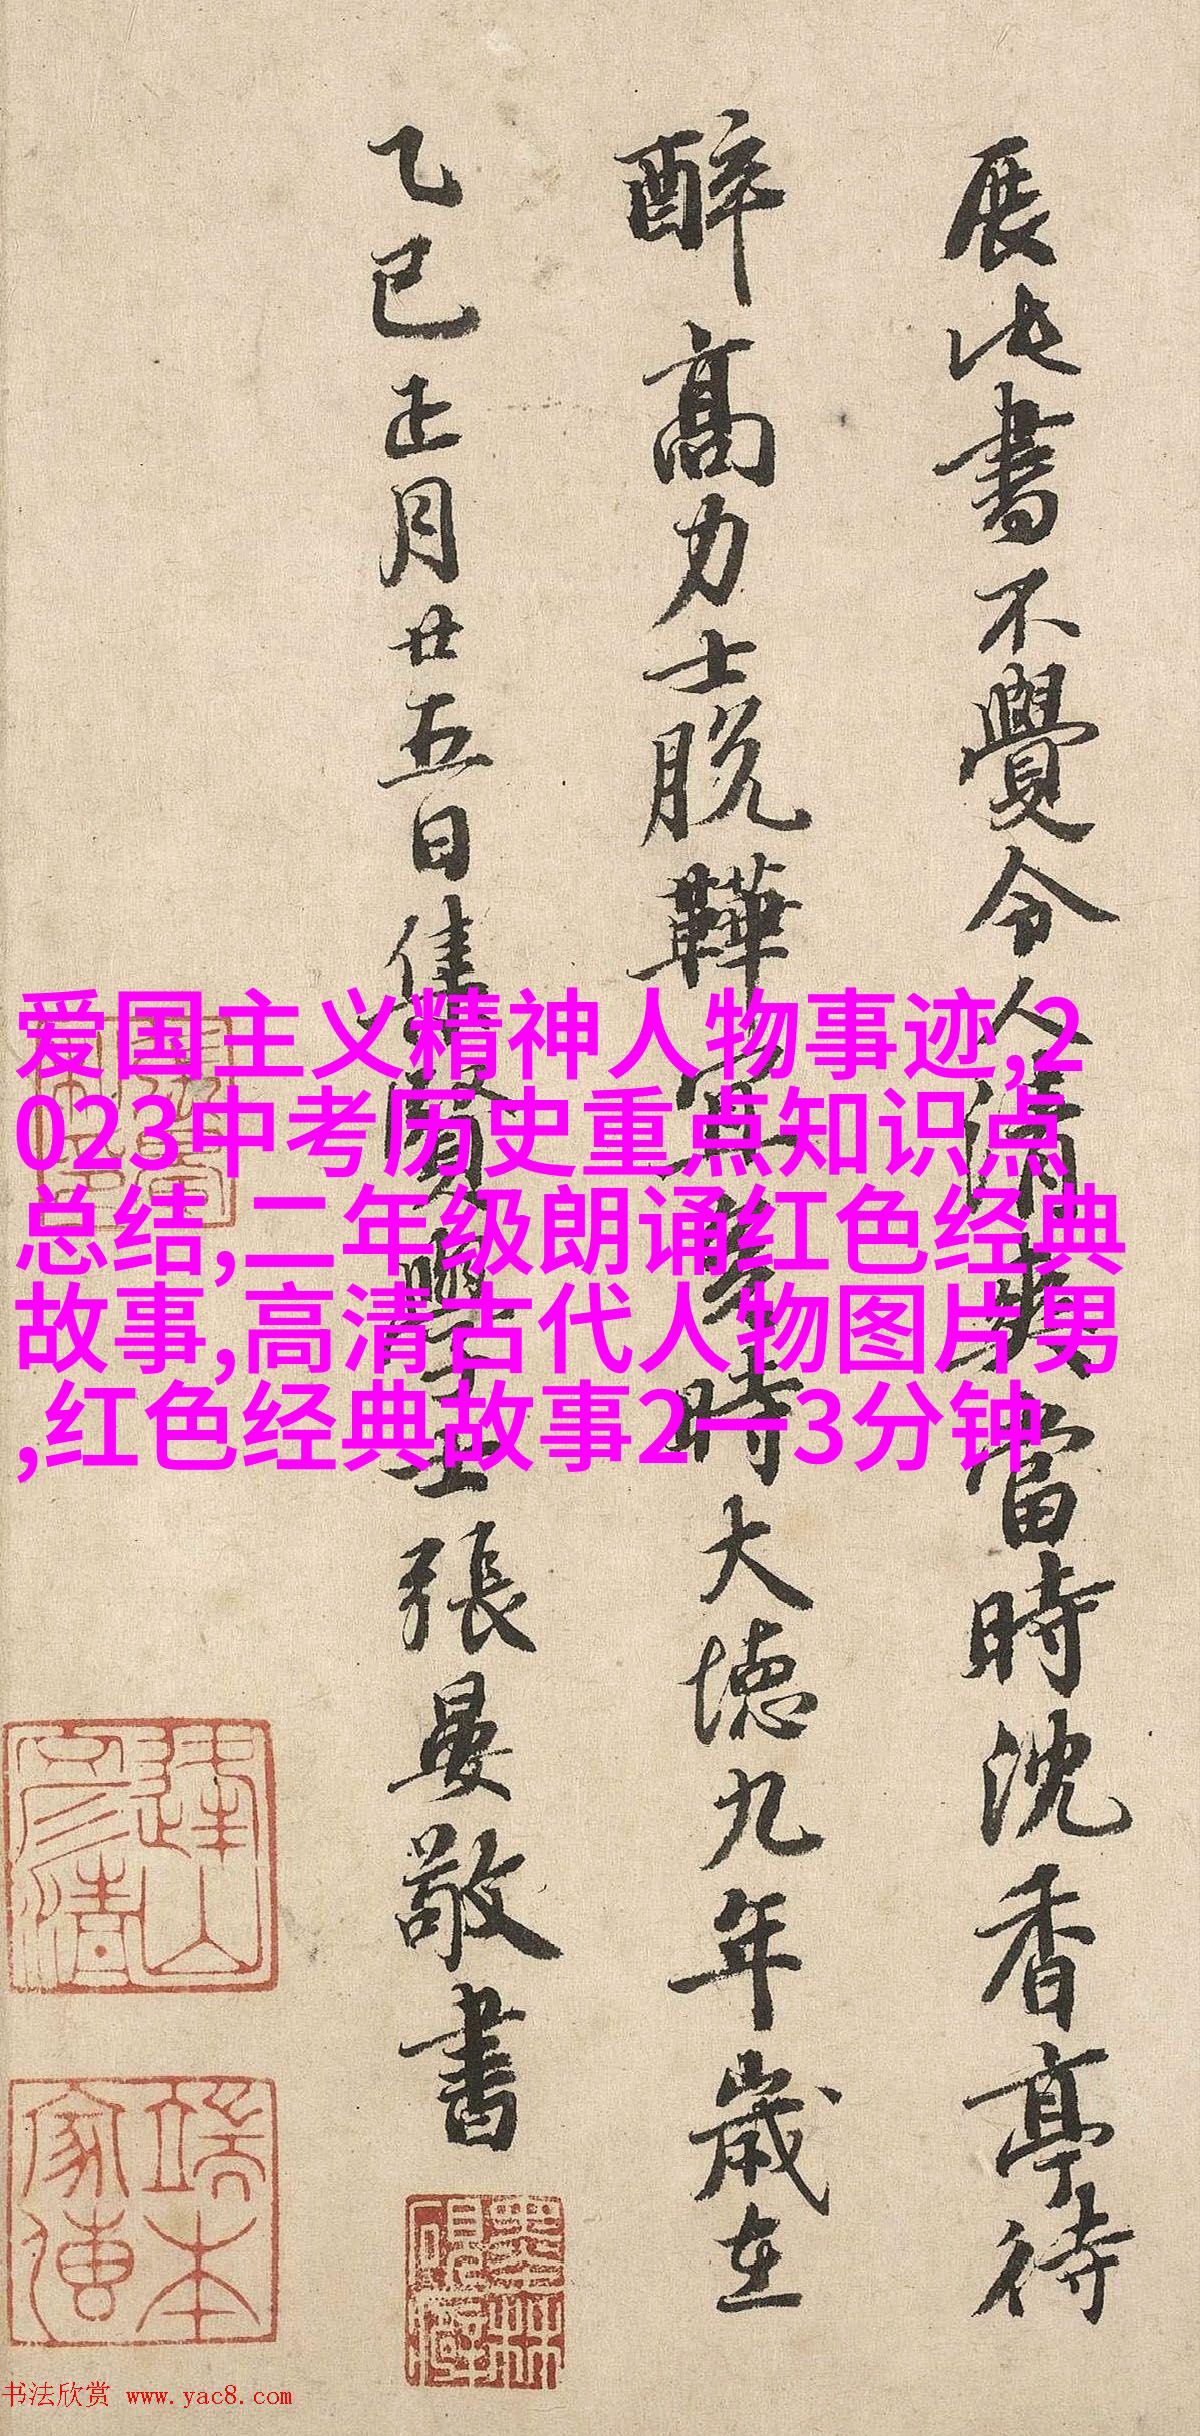 展此書不覺令人清爽當時沈香亭待
醉高力士脱鞾賔髩時大德九年歲在
乙巳正月廿五日集賢學士張晏敬書
爱国主义精神人物事迹,2
023中考历史重点知识点
总结,二年级朗诵红色经典
故事,高清古代人物图片男
,红色经典故事2一3分钟
书法欣赏 www.yac8.com